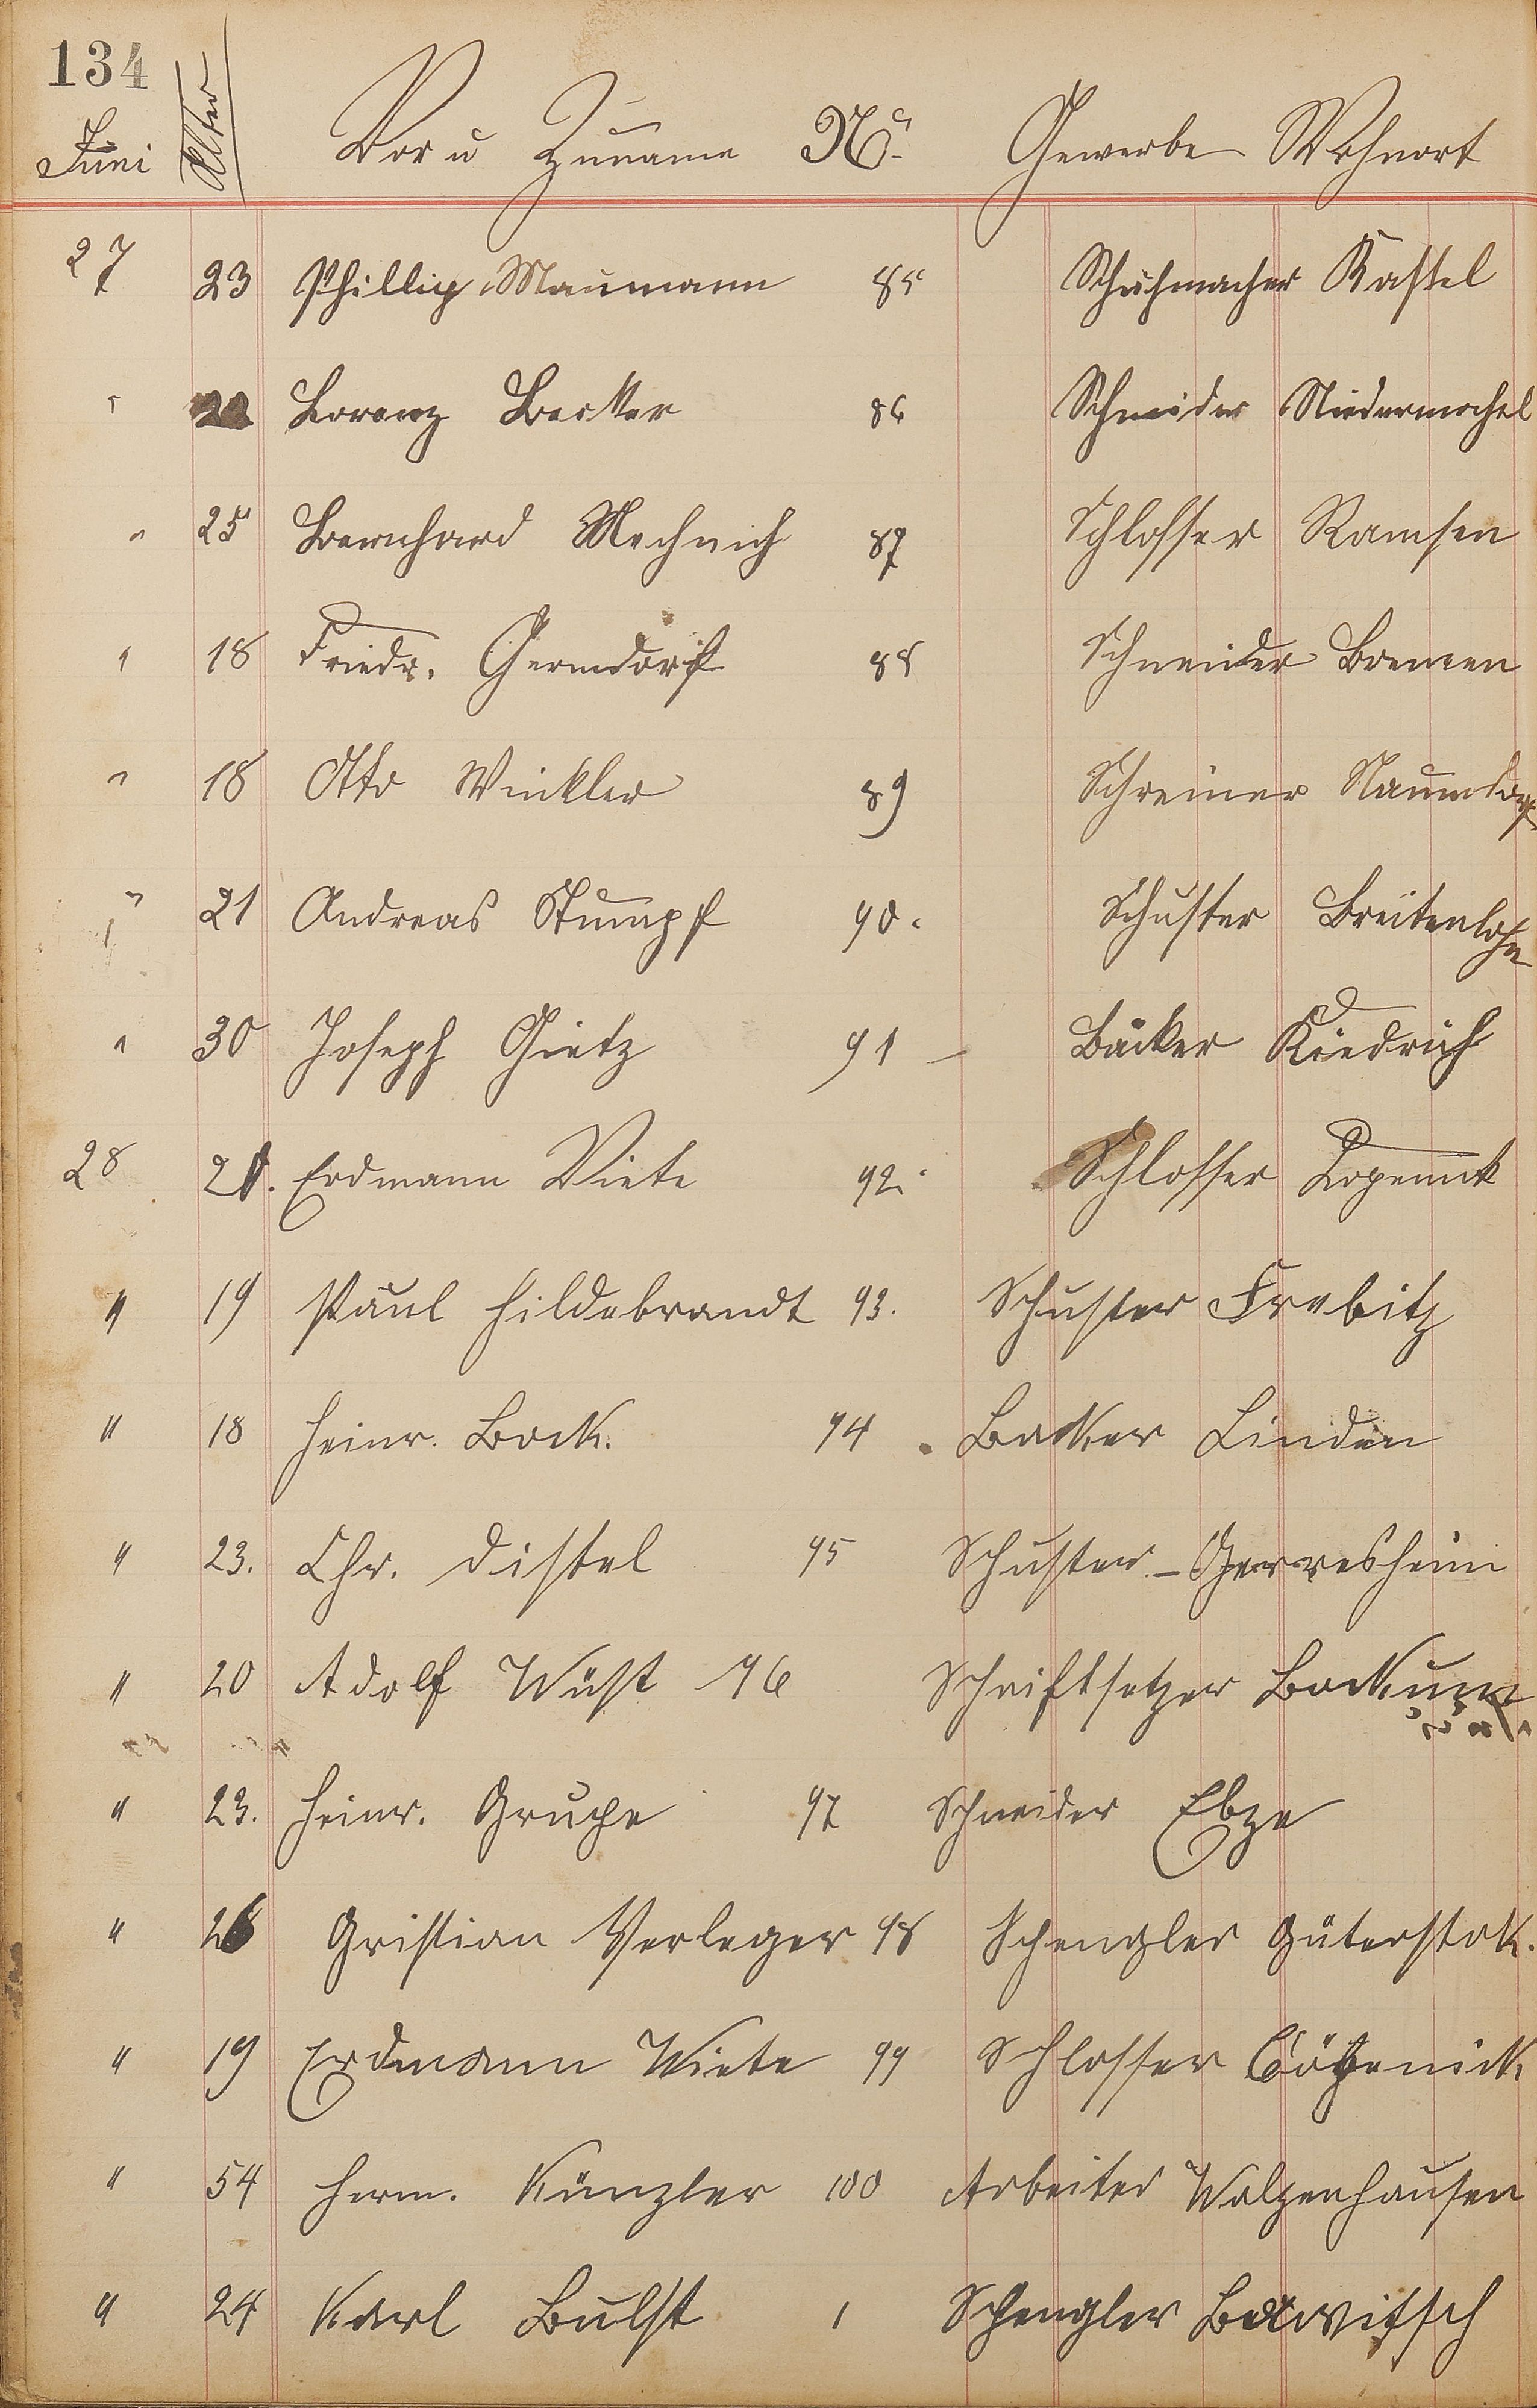 134
Juni Alter Vor u Zuname No. Gewerbe Wohnort
27 23 Phillip Maumann 85 Schuhmacher Kastel
" 22 Lorenz Becker 86 Schneider Niedermochel
" 25 Bernhard Mechnich 87 Schlosser Ramsen
" 18 Friedr. Germdorf 88 Schneider Bremen
" 18 Otto Winkler 89 Schreiner Naundorf
" 21 Andreas Stumpf 90. Schuster Breitenlohe
" 30 Joseph Gietz 91 - Bäcker Kiedrich
28 21. Erdmann Viete 92. Schlosser
" 19 Paul Hildebrandt 93. Schuster Frebitz
" 18 Heinr. Bock. 94 Backer Linden
" 23. Chr. Distel 95 Schuster - Gerresheim
" 20 Adolf Wüst 96 Schriftsetzer Bockum
" 23. Heinr. Grupe 97 Schneider Ebze
" 26 Gristian Verleger 98 Schengler Güterstok.
" 19 Erdmann Wiete 99 Schlosser Cöpenick
" 54 Herm. Künzler 100 Arbeiter Walzenhausen
" 24 Karl Bulst 1 Spengler